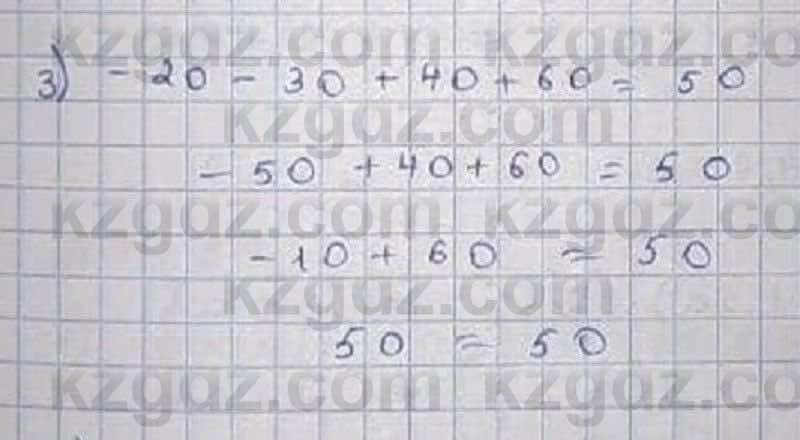 kzgaz.com kzgaz.co
3) - 20 - 30 + 40 + 60 = 50
kzgaz.com
- 50 + 40 + 60 = 50
kzgaz.com kzgaz.co
- 10 + 60 = 50
kzgaz.com
50 = 50
kzgaz.com kzgaz.co